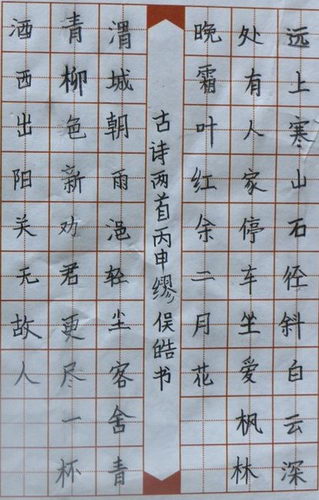 远上寒山石径斜白云深
处有人家停车坐爱枫林
晚霜叶红余二月花
古诗两首丙申缪俣皓书
渭城朝雨浥轻尘客舍青
青柳色新劝君更尽一杯
酒西出阳关无故人